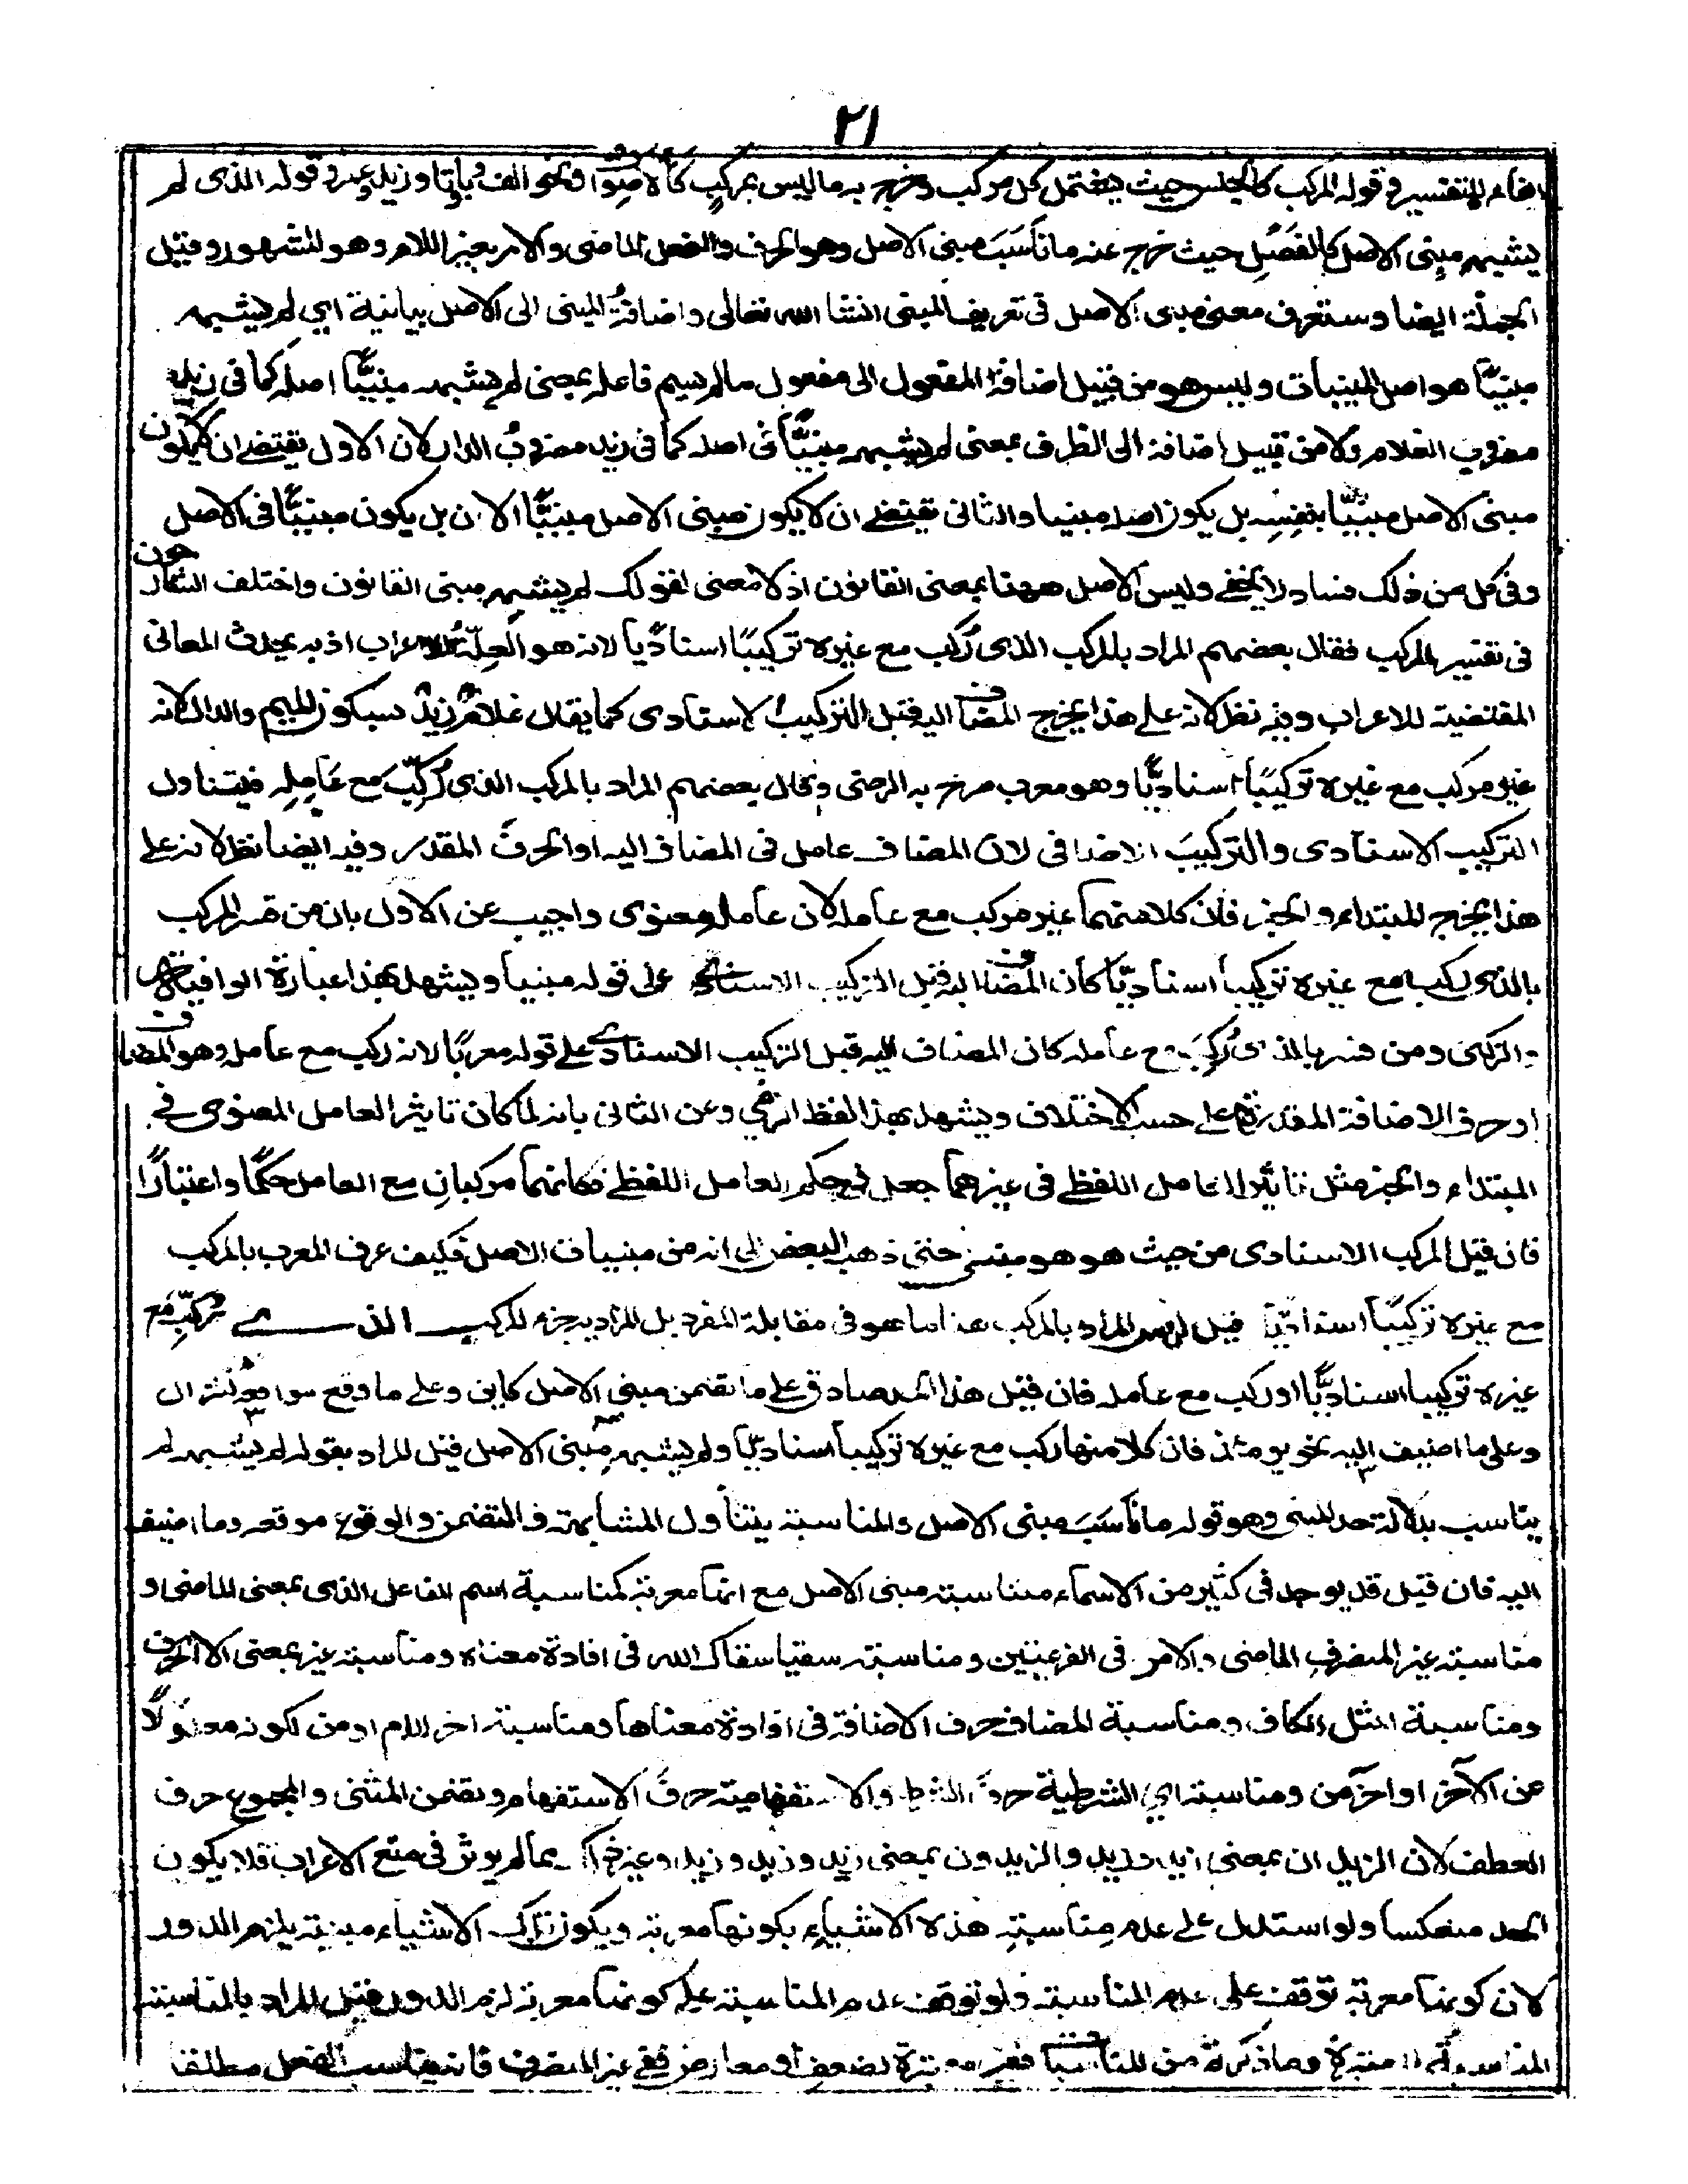 ٢١
الفاء للتفسير في قوله المركب كالجنس حيث يشتمل كل مركب وخرج به ما ليس بمركب كالاصوات ونحو الف وبا وتا وزيد وعمرو قوله الذى لم
يشبه مبنى الاصل كالفصل حيث خرج عنه ما ناسَبَ مبنى الاصل وهو الحرف والفعل الماضى والامر بغير اللام وهو المشهور وقيل
الجملة ايضا وستعرف معنى مبنى الاصل فى تعريف المبنى انشا الله تعالى واضافةُ المبنى الى الاصل بيانية اي لم يشبه
مبنيًّا هو اصل المبنيات وليس هو من قبيل اضافة المفعول الى مفعول ما لم يسم فاعله بمعنى لم يشبه مبنيًّا اصله كما فى زيد
مضروب الغلام ولا من قبيل اضافة الى الظرف بمعنى لم يشبه مبنيًّا فى اصله كما فى زيد مضروبُ الدار لان الاول يقتضے ان لا يكون
مبنى الاصل مبنيًّا بنفسِه بل يكون اصله مبنيا والثانى يقتضے ان لا يكون مبنى الاصل مبنيًّا الان بل يكون مبنيًّا فى الاصل
وفى كل من ذلك فساد لا يخفے وليس الاصل ههنا بمعنى القانون اذ لا معنى لقولك لم يشبه مبنى القانون واختلف الشارحون
فى تفسير المركب فقال بعضهم المراد بالمركب الذى رُكب مع غيره تركيبًا اسناديًّا لانه هو العِلّة للاعراب اذ به يحدث المعانى
المقتضية للاعراب وفيه نظر لانه علے هذا يخرج المضاف اليه قبل التركيب الاسنادى كما يقال غلامْ زيدْ بسكون الميم والدال لانه
غير مركب مع غيره تركيبًا اسناديًّا وهو معرب صرح به الرضى وقال بعضهم المراد بالمركب الذى رُكِّبَ مع عَامِلِه فيتناول
التركيب الاسنادى والتركيبَ الاضافى لان المضاف عامل فى المضاف اليه او الحرفَ المقدر وفيه ايضا نظر لانه على
هذا يخرج المبتداء والخبر فان كلا منهما غير مركب مع عامله لان عامله معنوى واجيب عن الاول بان من فسر المركب
بالذى ركب مع غيره تركيبا اسناديًّا كان المضاف اليه قبل التركيب الاسنادى على قوله مبنيا ويشهد بهذا عبارة الوافية
ومن فسره بالذى رُكِبَ مع عامله كان المضاف اليه قبل التركيب الاسنادے علے قوله معربًا لانه ركب مع عامله وهو المضاف
او حرف الاضافة المقدرة علے حسب الاختلاف ويشهد بهذا لفظ الرضي وعن الثانى بانه لما كان تاثير العامل المعنوى فے
المبتداء والخبر مثل تاثير العامل اللفظے فى غيرهما جعل فى حكم العامل اللفظے فكانهما مركبانِ مع العامل حكمًا واعتبارًا
فان قيل المركب الاسنادى من حيث هو هو مبنى حتى ذهب البعض الى انه من مبنيات الاصل فكيف عرف المعرب بالمركب
مع غيره تركيبًا اسناديًّا قيل ليس المراد بالمركب هذا ما هو فى مقابلة المفرد بل المراد به جزء المركب الذے رُكّبَ مع
غيره تركيبا اسناديًّا او ركب مع عامله فان قيل هذا الحد صادق علے ما تضمن مبنى الاصل كاين وعلے ما وقع موقعه كنزال
وعلى ما اضيف اليه نحو يومئذ فان كلا منها ركب مع غيره تركيباً اسناديًّا ولم يشبه مبنى الاصل قيل المراد بقوله لم يشبه لم
يناسب بدلالة حد المبنى وهو قوله ما نَاسَبَ مبنى الاصل والمناسبة يتناول المشابهة والتضمن والوقوع موقعه وما اضيف
اليه فان قيل قد يوجد فى كثير من الاسماء مناسبة مبنى الاصل مع انها معربة كمناسبة اسم الفاعل الذى بمعنى الماضى و
مناسبة غير المنصرف الماضى والامر فى الفرعيتين ومناسبة سقيا سقاك الله فى افادة معناه ومناسبة غير بمعنى الا الحرف
ومناسبة المثل الكاف ومناسبة المضاف حرف الاضافة فى افادة معناها ومناسبة اخر اللام او من لكونه معدولًا
عن الآخر او اخر من ومناسبة اي الشرطية حرفَ الشرط والاستفهامية حرفَ الاستفهام وتضمن المثنى والمجموع حرف
العطف لان الزيدان بمعنى زيد وزيد والزيدون بمعنى زيد وزيد وزيد وغير ذلك مما لم يوثر فى منع الاعراب فلا يكون
الحد منعكسا ولو استدل علے عدم مناسبةِ هذه الاشياء بكونها معربة ويكون تلك الاشياء مبنية يلزم الدور
لان كونها معربة توقف على عدم المناسبة ولو توقف عدم المناسبة عليه كونها معربة لزم الدور قيل المراد بالمناسبة
المناسبة المعتبرة وما ذكرته من المناسبات فغير معتبرة لضعف او معارض ففے غير المنصرف فانه يناسب الفعل مطلقا